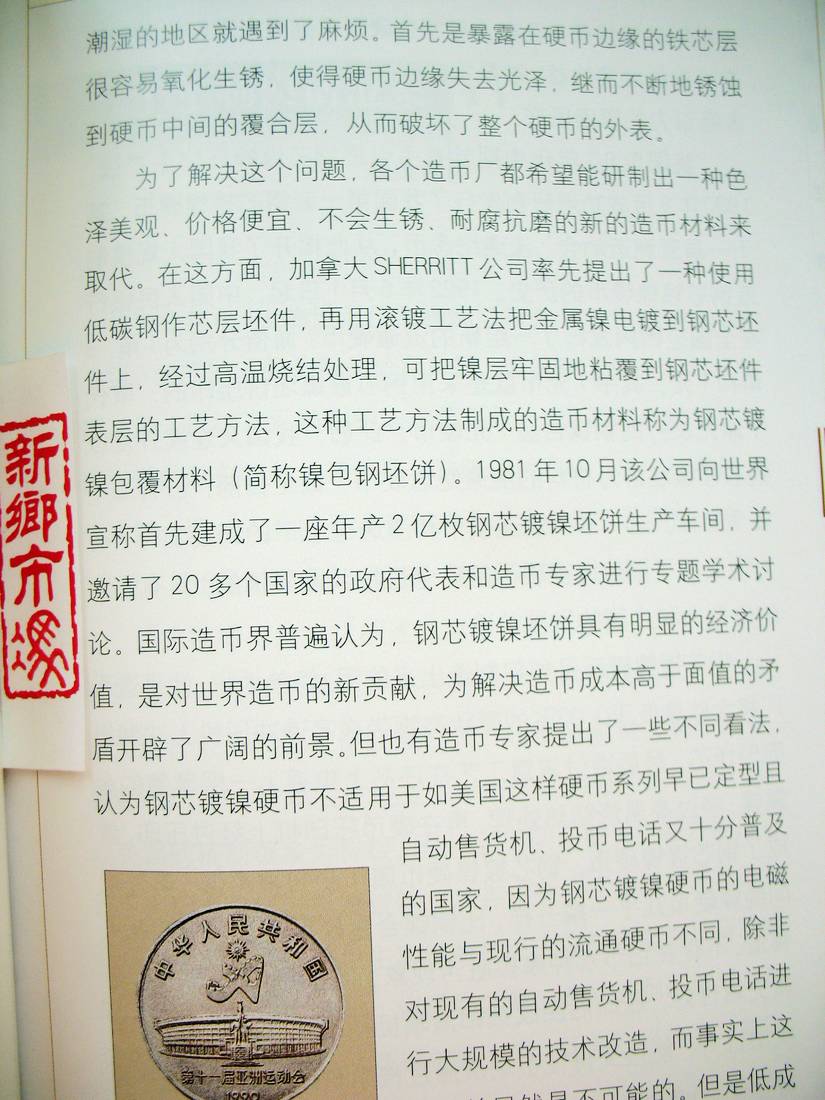 潮湿的地区就遇到了麻烦。首先是暴露在硬币边缘的铁芯层
很容易氧化生锈，使得硬币边缘失去光泽，继而不断地锈蚀
到硬币中间的覆合层，从而破坏了整个硬币的外表。
为了解决这个问题，各个造币厂都希望能研制出一种色
泽美观、价格便宜、不会生锈、耐腐抗磨的新的造币材料来
取代。在这方面，加拿大SHERRITT公司率先提出了一种使用
低碳钢作芯层坯件，再用滚镀工艺法把金属镍电镀到钢芯坯
件上，经过高温烧结处理，可把镍层牢固地粘覆到钢芯坯件
表层的工艺方法，这种工艺方法制成的造币材料称为钢芯镀
镍包覆材料（简称镍包钢坯饼）。1981年10月该公司向世界
宣称首先建成了一座年产2亿枚钢芯镀镍坯饼生产车间，并
邀请了20多个国家的政府代表和造币专家进行专题学术讨
论。国际造币界普遍认为，钢芯镀镍坯饼具有明显的经济价
值，是对世界造币的新贡献，为解决造币成本高于面值的矛
盾开辟了广阔的前景。但也有造币专家提出了一些不同看法，
认为钢芯镀镍硬币不适用于如美国这样硬币系列早已定型且
自动售货机、投币电话又十分普及
的国家，因为钢芯镀镍硬币的电磁
性能与现行的流通硬币不同，除非
对现有的自动售货机、投币电话进
行大规模的技术改造，而事实上这
显然是不可能的。但是低成
中华人民共和国
第十一届亚洲运动会
1990
新鄉市馮